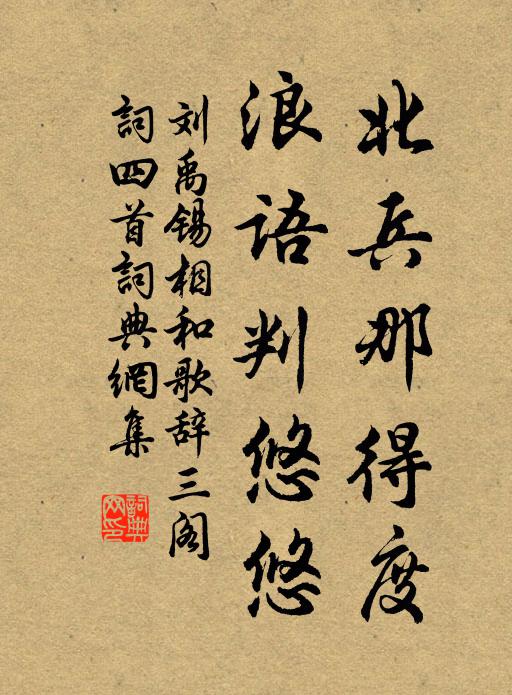 北兵那得度
浪语判悠悠
刘禹锡相和歌辞三阁
詞四首詞典網集
詞典
网印